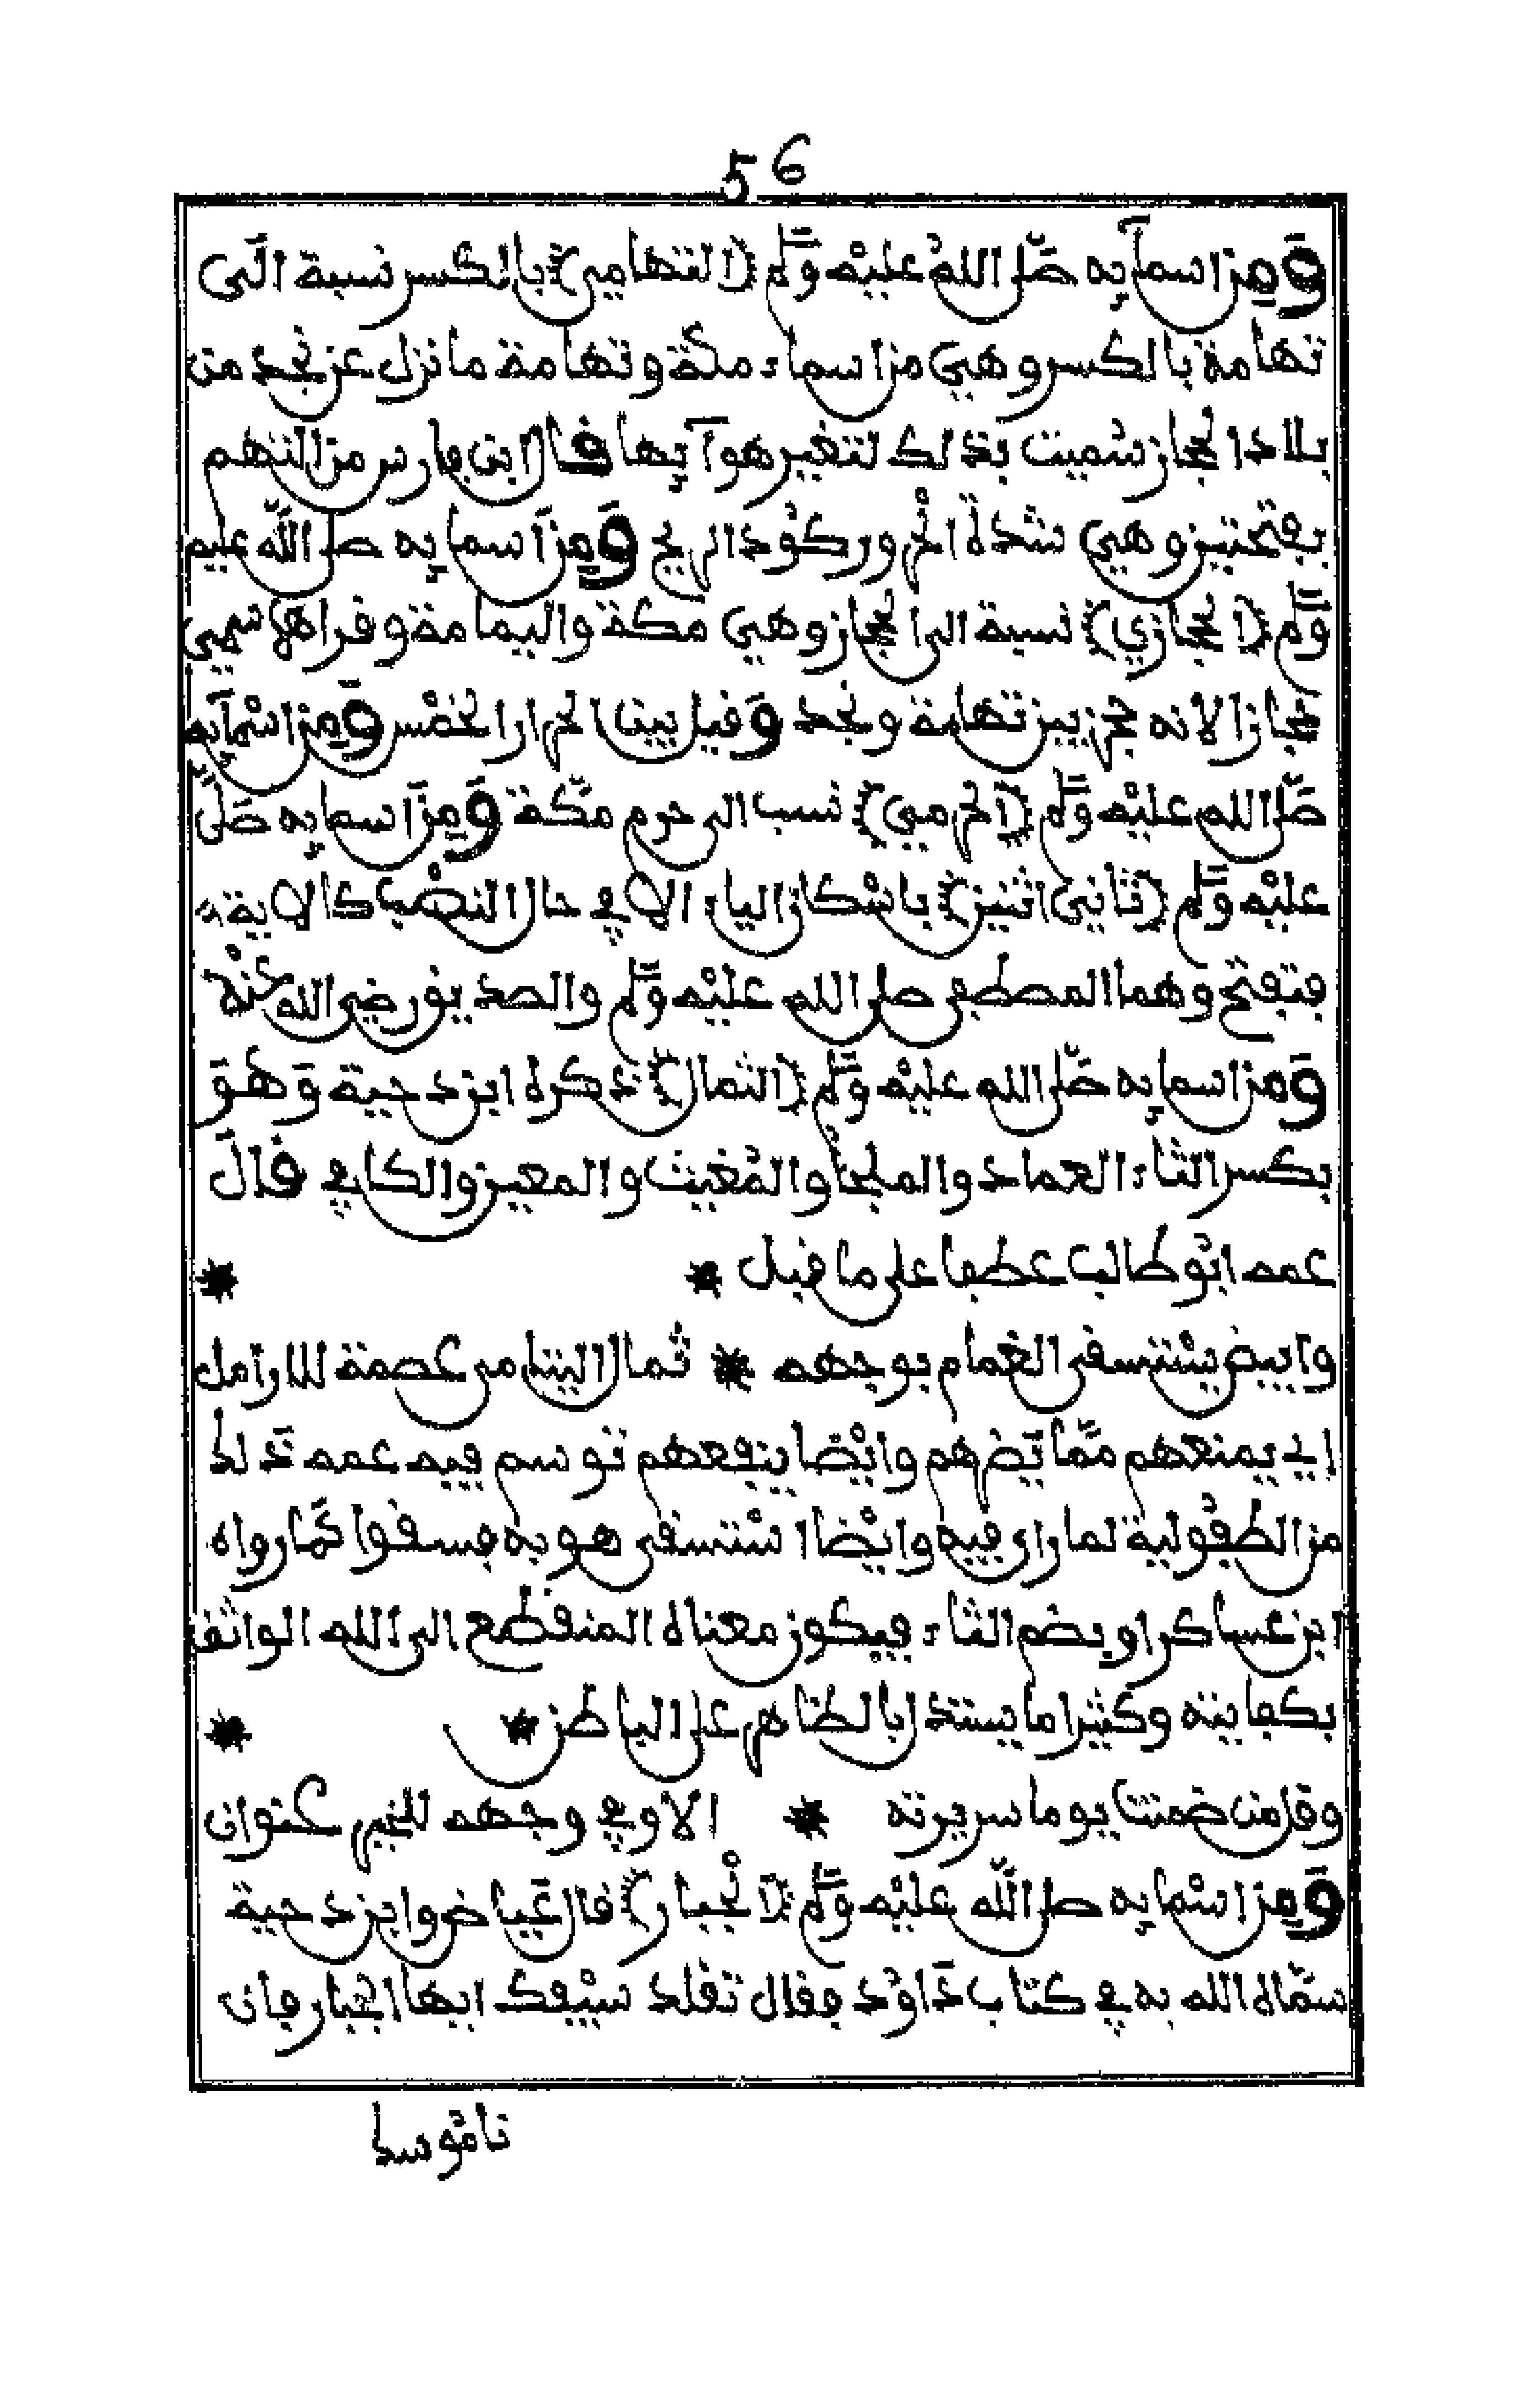 56
وَمِن اسمآيِه صَلّى اللهُ عليْه وَسَلّم (التهامي) بالكسر نسبة الَى
تهامة بالكسر وهي من اسماء مكة وتهامة ما نزل عن نجد من
بلاد الحجاز سُميت بذلك لتغير هوآيِها فال ابن فارس من التهم
بفتحتين وهي شدة الحر وركود الريح وَمِن اسمايِه صلى اللّه عليه
وَسَلّم (الحجازي) نسبة الى الحجاز وهي مكة واليمامة وفراها سمي
حجازا لانه حجز بين تهامة ونجد وَفيل بين الحرار الخمْس وَمِن اسْمآيِه
صَلّى الله عليْه وَسَلّم (الحرمي) نسب الى حرم مكّة وَمِن اسمايِه صَلّى
عليْه وَسَلّم (ثاني اثنين) باسْكان الياء الا في حال النصْب كالاية
فتفتح وهما المصطفى صلى الله عليْه وَسَلّم والصديق رضي الله عنْه
وَمن اسمايِه صَلّى الله عليْه وَسَلّم (الثمال) ذكره ابن دحية وَهوَ
بكسر الثاء العماد والملجأ والمُغيث والمعين والكافي فالَ
عمه ابُو طالب عطفا على ما فبل * *
وابيض يسْتسفى الغمام بوجهه * ثُمال اليتامى عصمة للارامل
اي يمنعهم مّما يَضرهم وايْضا ينفعهم توسم فيه عمه ذَلك
من الطفُولية لما راى فيه وايْضا اسْتسفى هو به فسفوا كَما رواه
ابن عساكر او بضم الثاء فيكون معناه المنفطع الى الله الواثق
بكفايته وكثيرا ما يستدل بالظاهر على الباطن * *
وفل من ضمنت يوما سريرته * الا وفي وجهه للخير عنوان
وَمِن اسْمايِه صلى اللّه عليْه وَسَلّم (الْجبار) فال عَياض وابن دحية
سمّاه الله به في كتاب دَاوُد ففال تفلد سيْفك ايها الجبار فان
نامُوسك